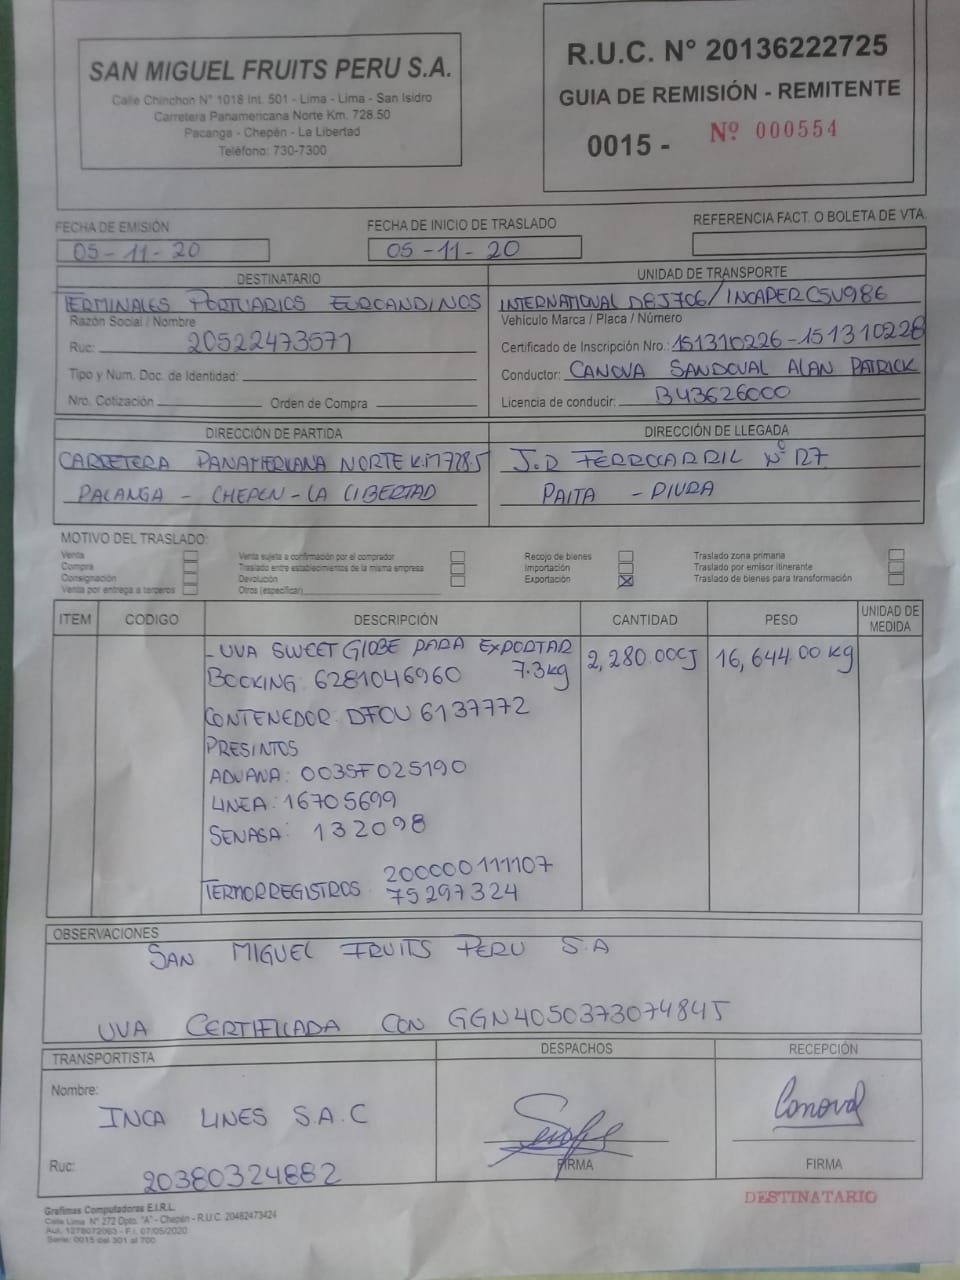 SAN MIGUEL FRUITS PERU S.A.
Calle Chinchon N° 1018 Int. 501 - Lima - Lima - San Isidro
Carretera Panamericana Norte Km. 728.50
Pacanga - Chepén - La Libertad
Teléfono: 730-7300
R.U.C. N° 20136222725
GUIA DE REMISIÓN - REMITENTE
0015 - Nº 000554
FECHA DE EMISIÓN
05-11-20
FECHA DE INICIO DE TRASLADO
05-11-20
REFERENCIA FACT. O BOLETA DE VTA.
DESTINATARIO
TERMINALES PORTUARIOS EUROANDINOS
Razón Social / Nombre
Ruc: 20522473571
Tipo y Num. Doc. de Identidad:
Nro. Cotización Orden de Compra
UNIDAD DE TRANSPORTE
INTERNATIONAL D8J706/INCAPER C5U986
Vehículo Marca / Placa / Número
Certificado de Inscripción Nro.: 151310226-151310228
Conductor: CANOVA SANDOVAL ALAN PATRICK
Licencia de conducir: B43626000
DIRECCIÓN DE PARTIDA
CARRETERA PANAMERICANA NORTE K.M 728.5
PACANGA - CHEPEN - LA LIBERTAD
DIRECCIÓN DE LLEGADA
J.R FERROCARRIL N° 127
PAITA - PIURA
MOTIVO DEL TRASLADO:
Venta
Compra
Consignación
Venta por entrega a terceros
Venta sujeta a confirmación por el comprador
Traslado entre establecimientos de la misma empresa
Devolución
Otros (especificar)
Recojo de bienes
Importación
Exportación X
Traslado zona primaria
Traslado por emisor itinerante
Traslado de bienes para transformación
ITEM CODIGO DESCRIPCIÓN CANTIDAD PESO UNIDAD DE MEDIDA
- UVA SWEET GLOBE PARA EXPORTAR 2,280.00CJ 16,644.00 kg
BOOKING: 6281046960 7.3kg
CONTENEDOR: DFOU 6137772
PRESINTOS
ADUANA: 003SF025190
LINEA: 16705699
SENASA: 132098
TERMORREGISTROS 200000111107
75297324
OBSERVACIONES
SAN MIGUEL FRUITS PERU S.A
UVA CERTIFICADA CON GGN4050373074845
TRANSPORTISTA
Nombre:
INCA LINES S.A.C
Ruc: 20380324882
DESPACHOS
FIRMA
RECEPCIÓN
Canova
FIRMA
DESTINATARIO
Grafimas Computadoras E.I.R.L.
Calle Lima N° 272 Dpto. "A" - Chepén - R.U.C. 20482473424
Aut. 1278072063 - F.I. 07/05/2020
Serie: 0015 del 301 al 700